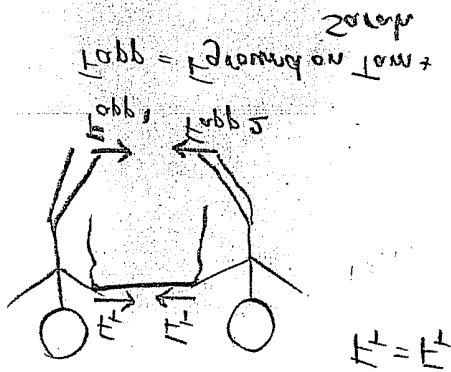 F_T = F_T
F_T F_T
F_app 1 F_app 2
F_app = F_ground on Tam +
Sarah